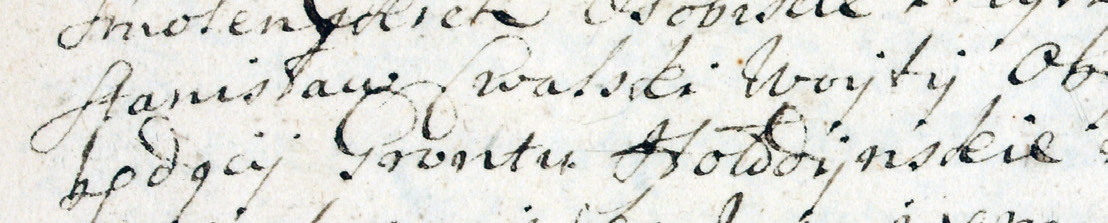 Smolenskich Osobiscie
Stanisław Swalski Woyty Ob
będącij Grontu Hołdÿnskie